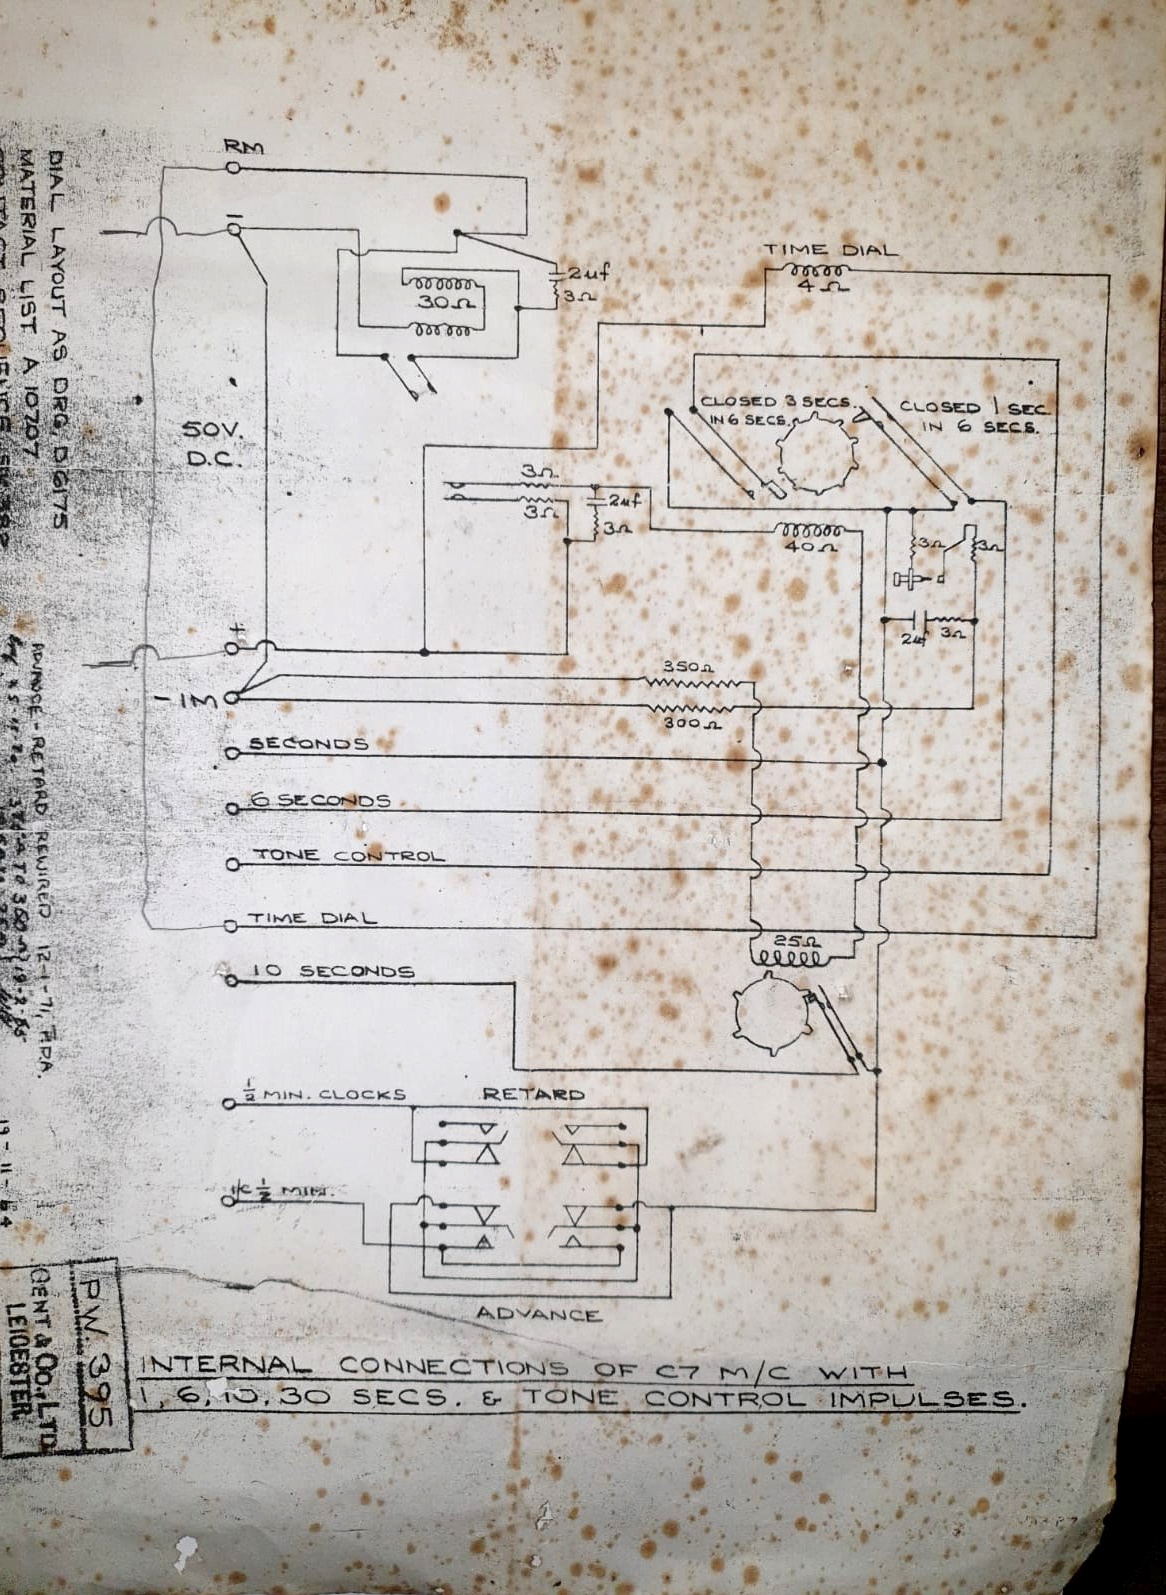 RM
−
2uf
3Ω
30Ω
TIME DIAL
4Ω
50V.
D.C.
CLOSED 3 SECS.
IN 6 SECS.
CLOSED 1 SEC
IN 6 SECS.
3Ω
3Ω
2uf
3Ω
40Ω
3Ω
3Ω
2uf
3Ω
+
350Ω
-1M
300Ω
SECONDS
6 SECONDS
TONE CONTROL
TIME DIAL
25Ω
10 SECONDS
½ MIN. CLOCKS
RETARD
½ MIN.
ADVANCE
INTERNAL CONNECTIONS OF C7 M/C WITH
1, 6, 10, 30 SECS. & TONE CONTROL IMPULSES.
DIAL LAYOUT AS DRG. D6175
MATERIAL LIST A 10707
ADVANCE - RETARD REWIRED 12-1-71,
19-11-64
P.W. 395
GENT & CO., LTD
LEICESTER